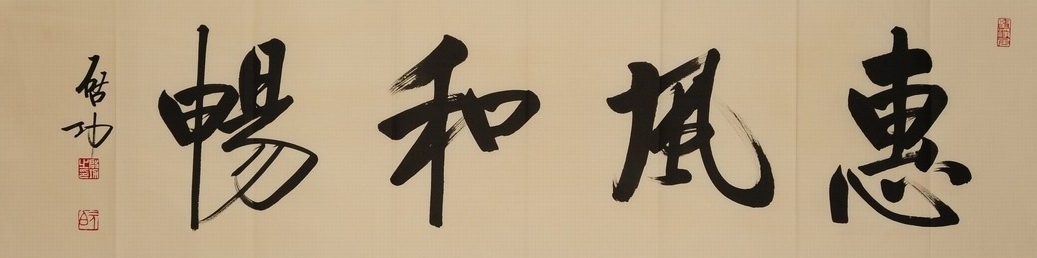 惠風和暢
啟功